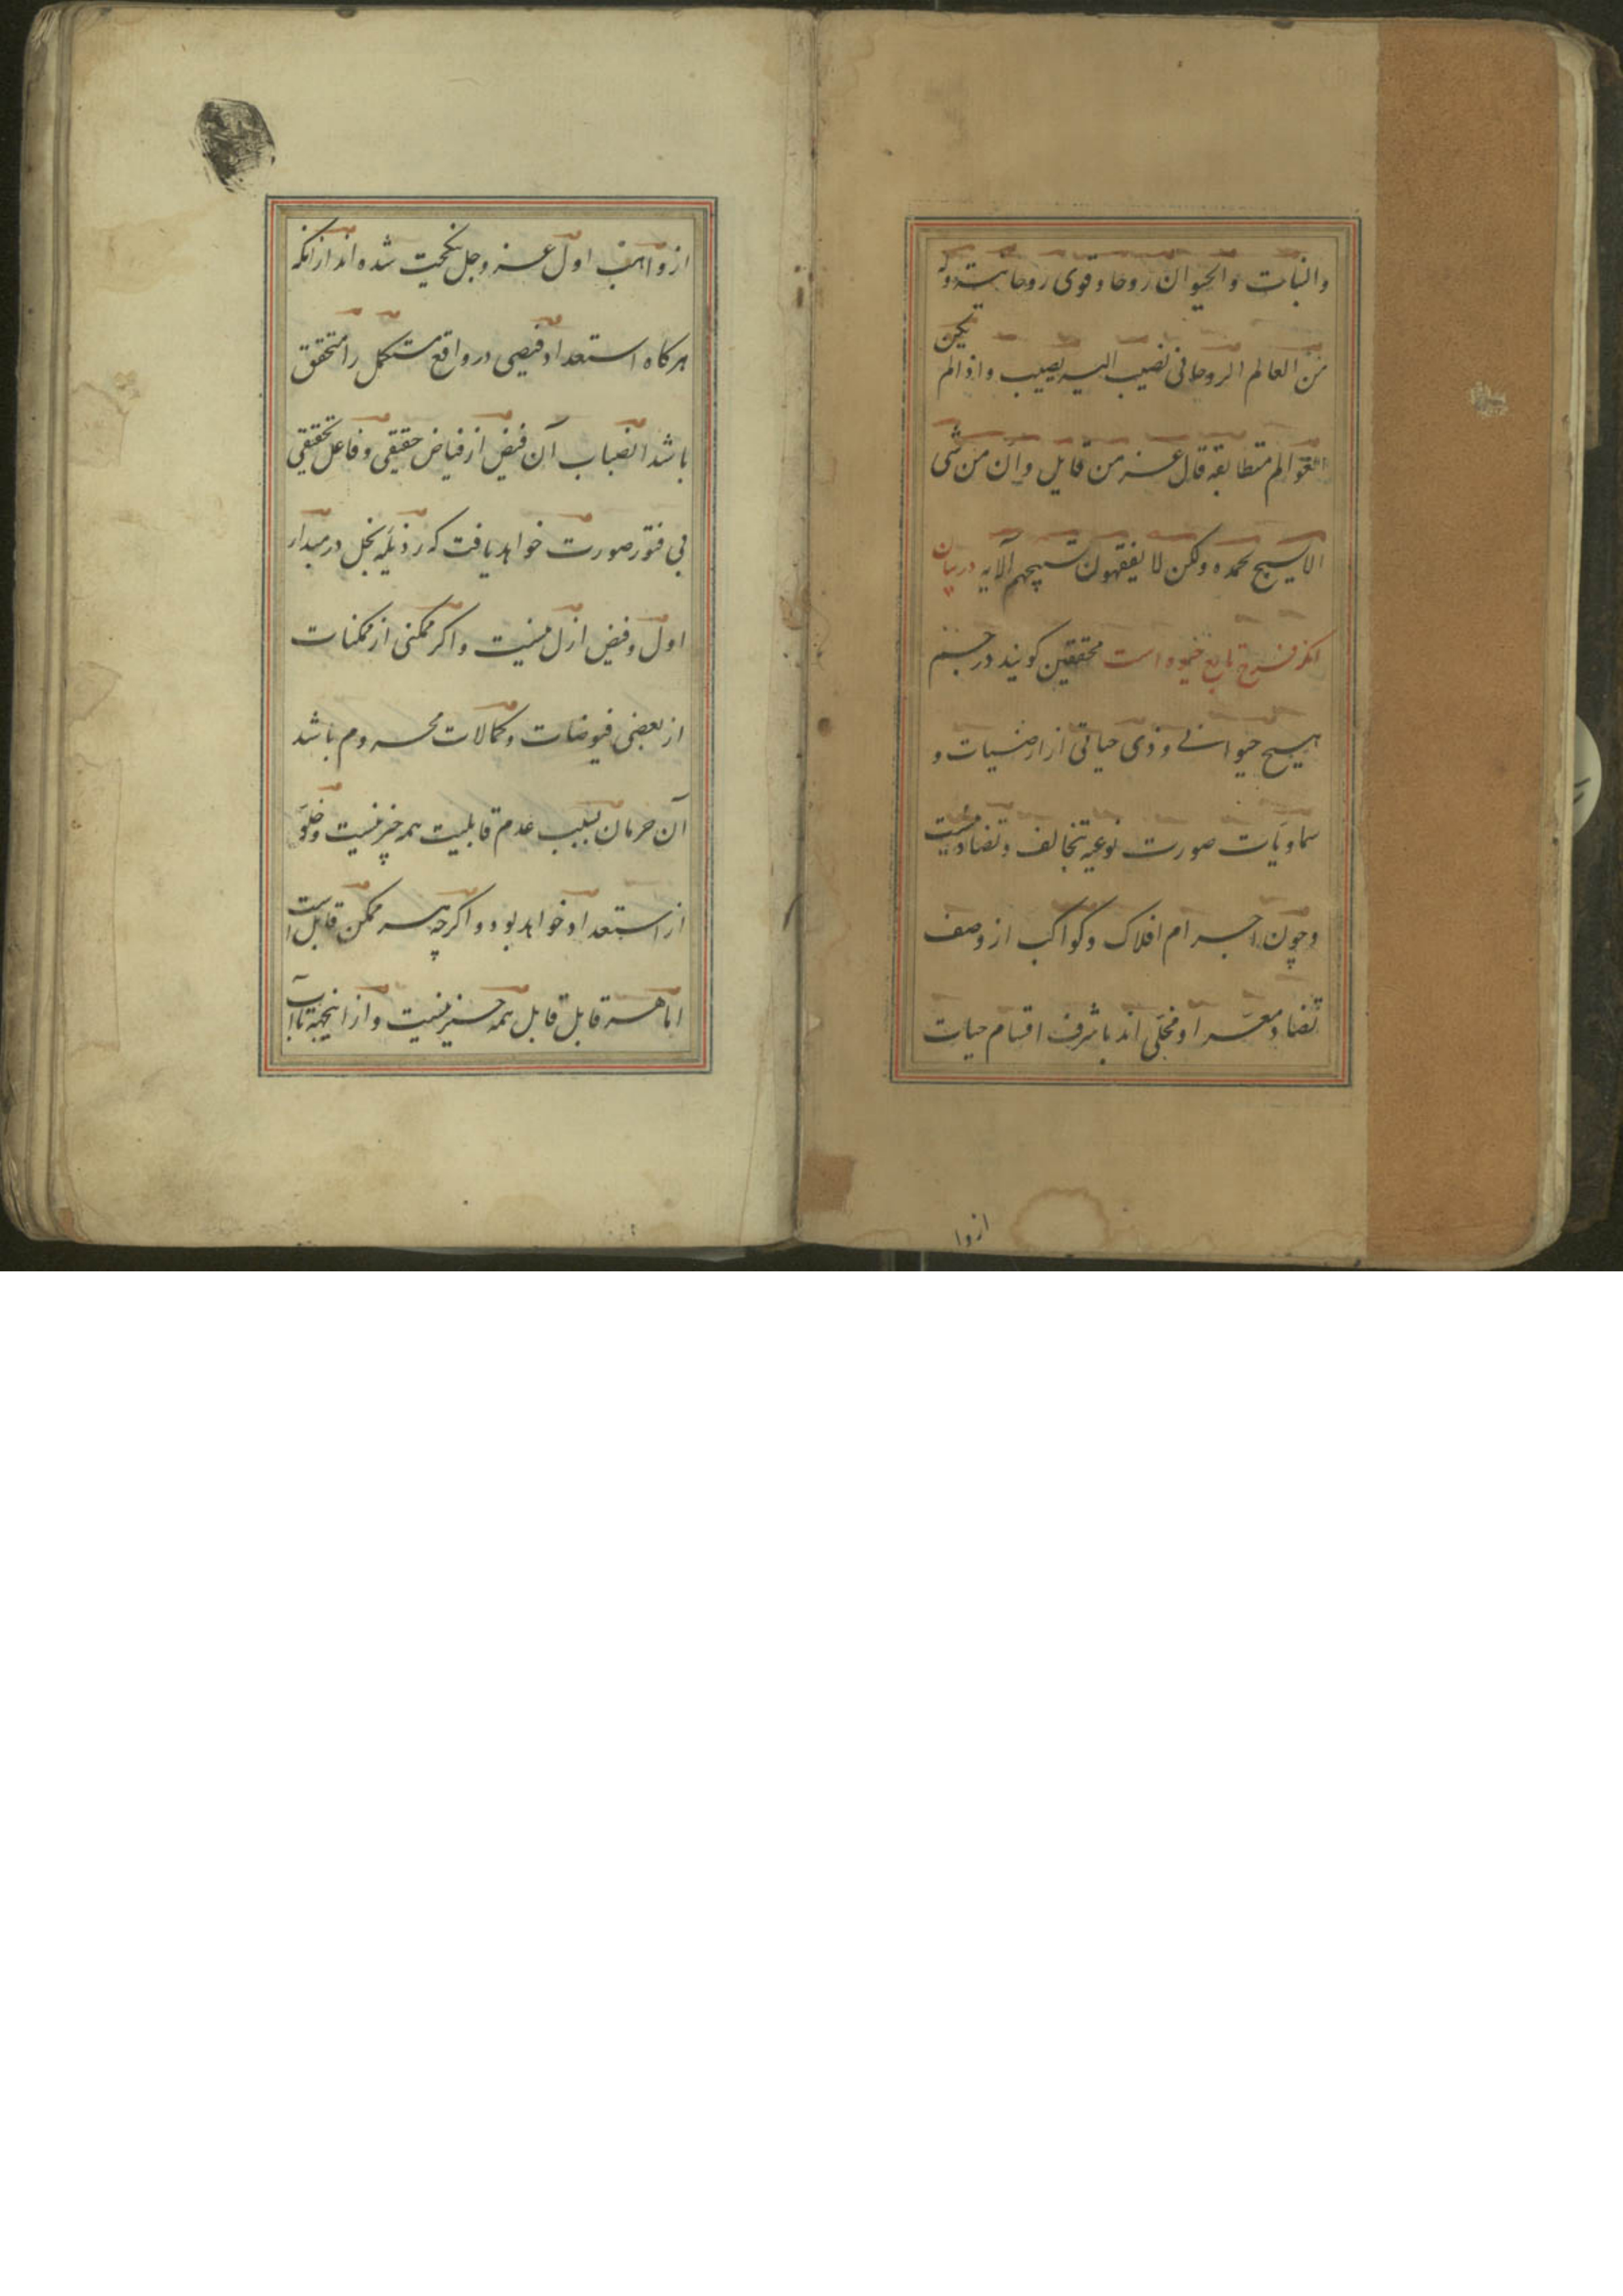 والنبات والحیوان روحا و قوی روحانیة وله
من العالم الروحانی نصیب الیه یصیب واذالم یکن
العوالم متطابقه قال عز من قایل وان من شی
الا یسبح بحمده ولکن لا یفقهون تسبیحهم الآیه در بیان
محققین کویند در
هیچ حیوانی و ذی حیاتی از ارضیات و
سماویات صورت نوعیه تخالف و تضاد نیست
و چون اجرام افلاک و کواکب از وصف
تضاد معرا و محلی اند باشرف اقسام حیات
از وا
از واهب اول عز و جل شده اند از آنکه
هرکاه استعداد فیضی در واقع مستکمل را متحقق
باشد انصباب آن فیض از فیاض حقیقی و فاعل تحقیقی
بی فتور صورت خواهد یافت که رذیله بخل در مبدأ
اول و فیض ازل نیست و اکر ممکنی از ممکنات
از بعضی فیوضات و کمالات محروم باشد
آن حرمان بسبب عدم قابلیت همه چیز نیست و خلو
از استعداد خواهد بود و اکرچه هر ممکن قابل است
اما هر قابل قابل همه چیز نیست و از اینجهة